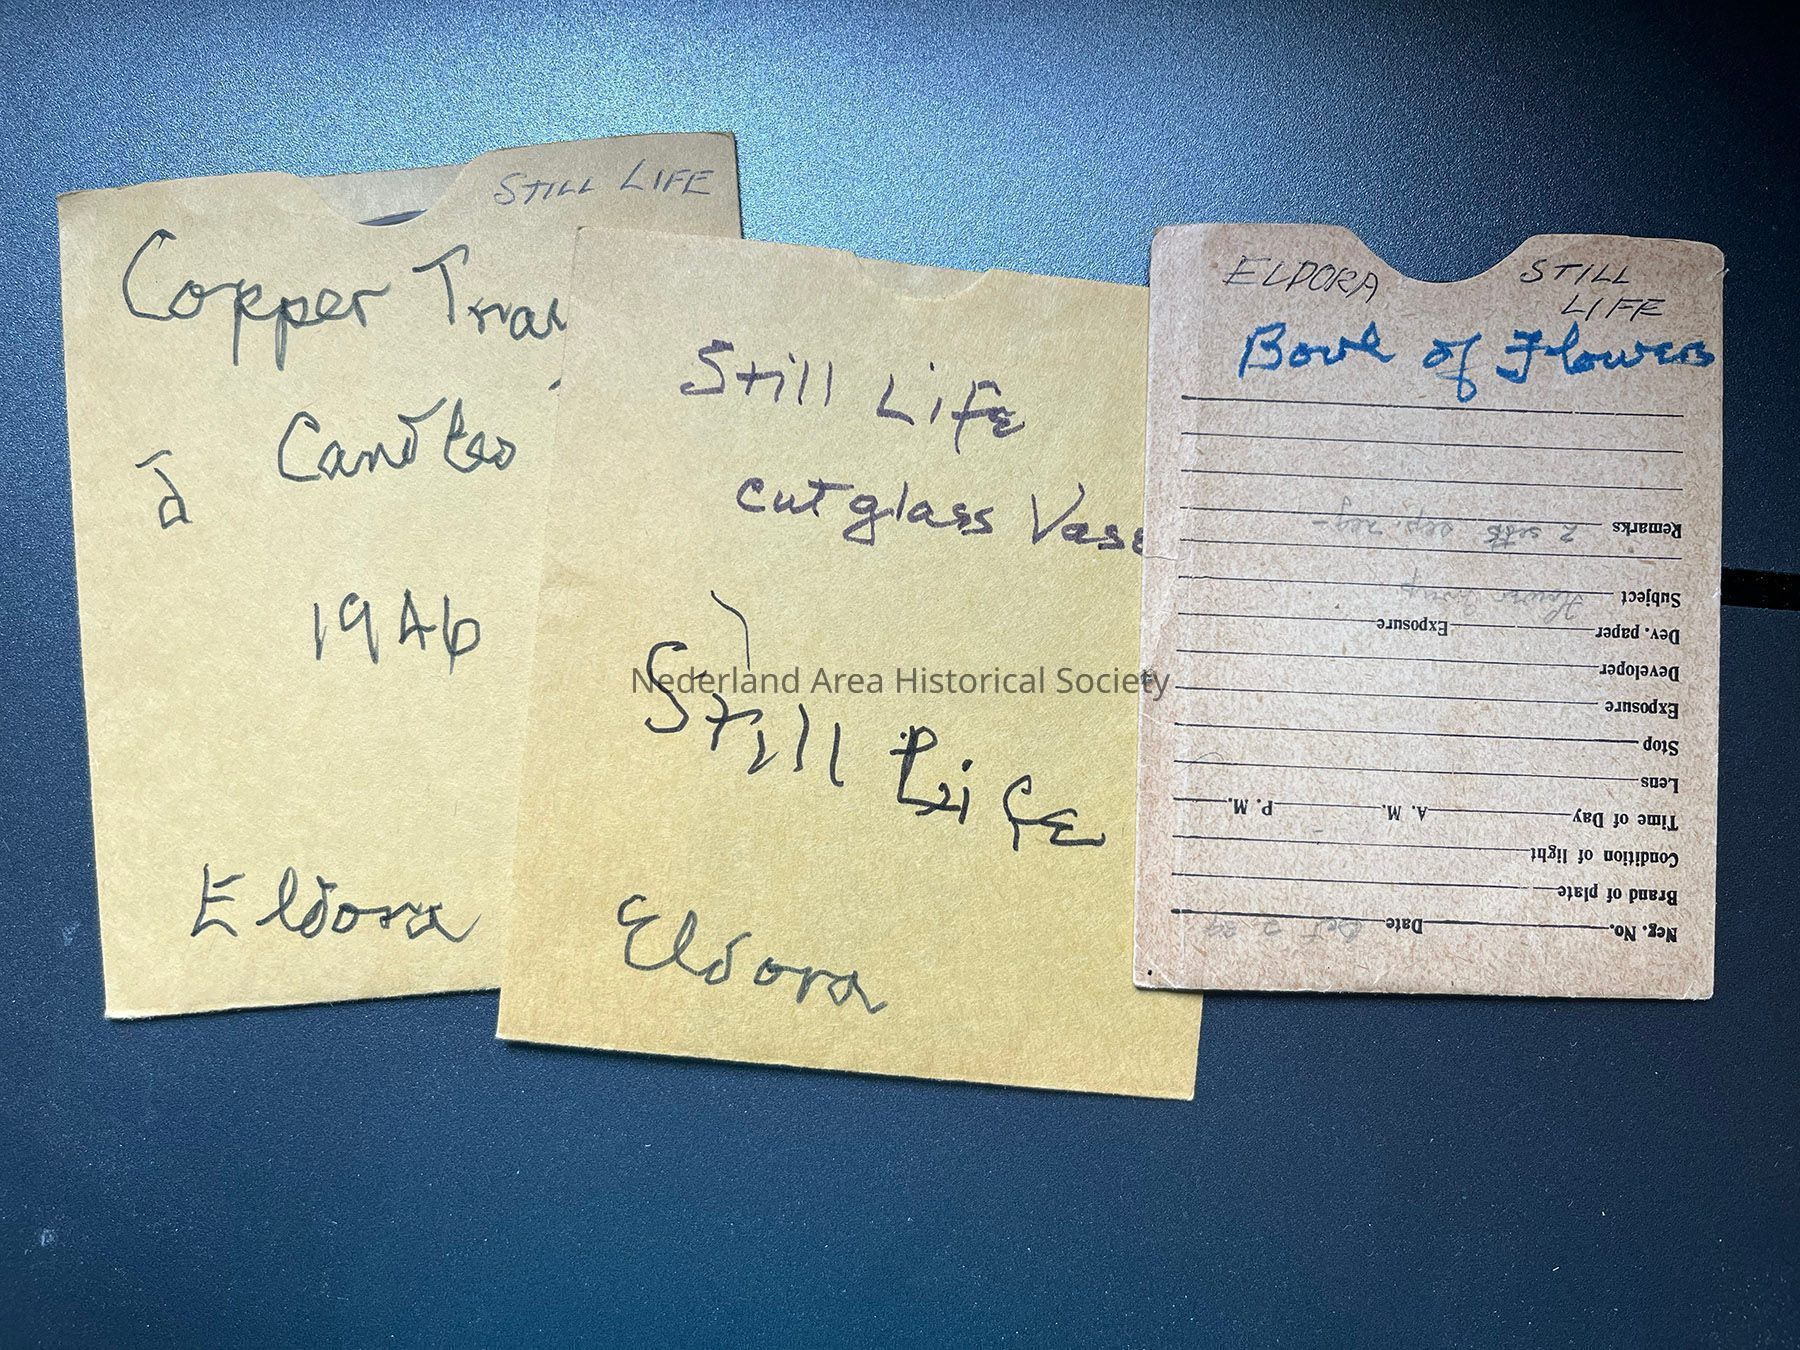 STILL LIFE
Copper Tra
Candles
1946
Eldora
Still Life
cutglass Vase
Still Life
Eldora
ELDORA
STILL
LIFE
Bowl of Flowers
Remarks
Subject
Dev. paper Exposure
Developer
Exposure
Stop
Lens
Time of Day A. M. P. M.
Condition of light
Brand of plate
Neg. No. Date
Nederland Area Historical Society